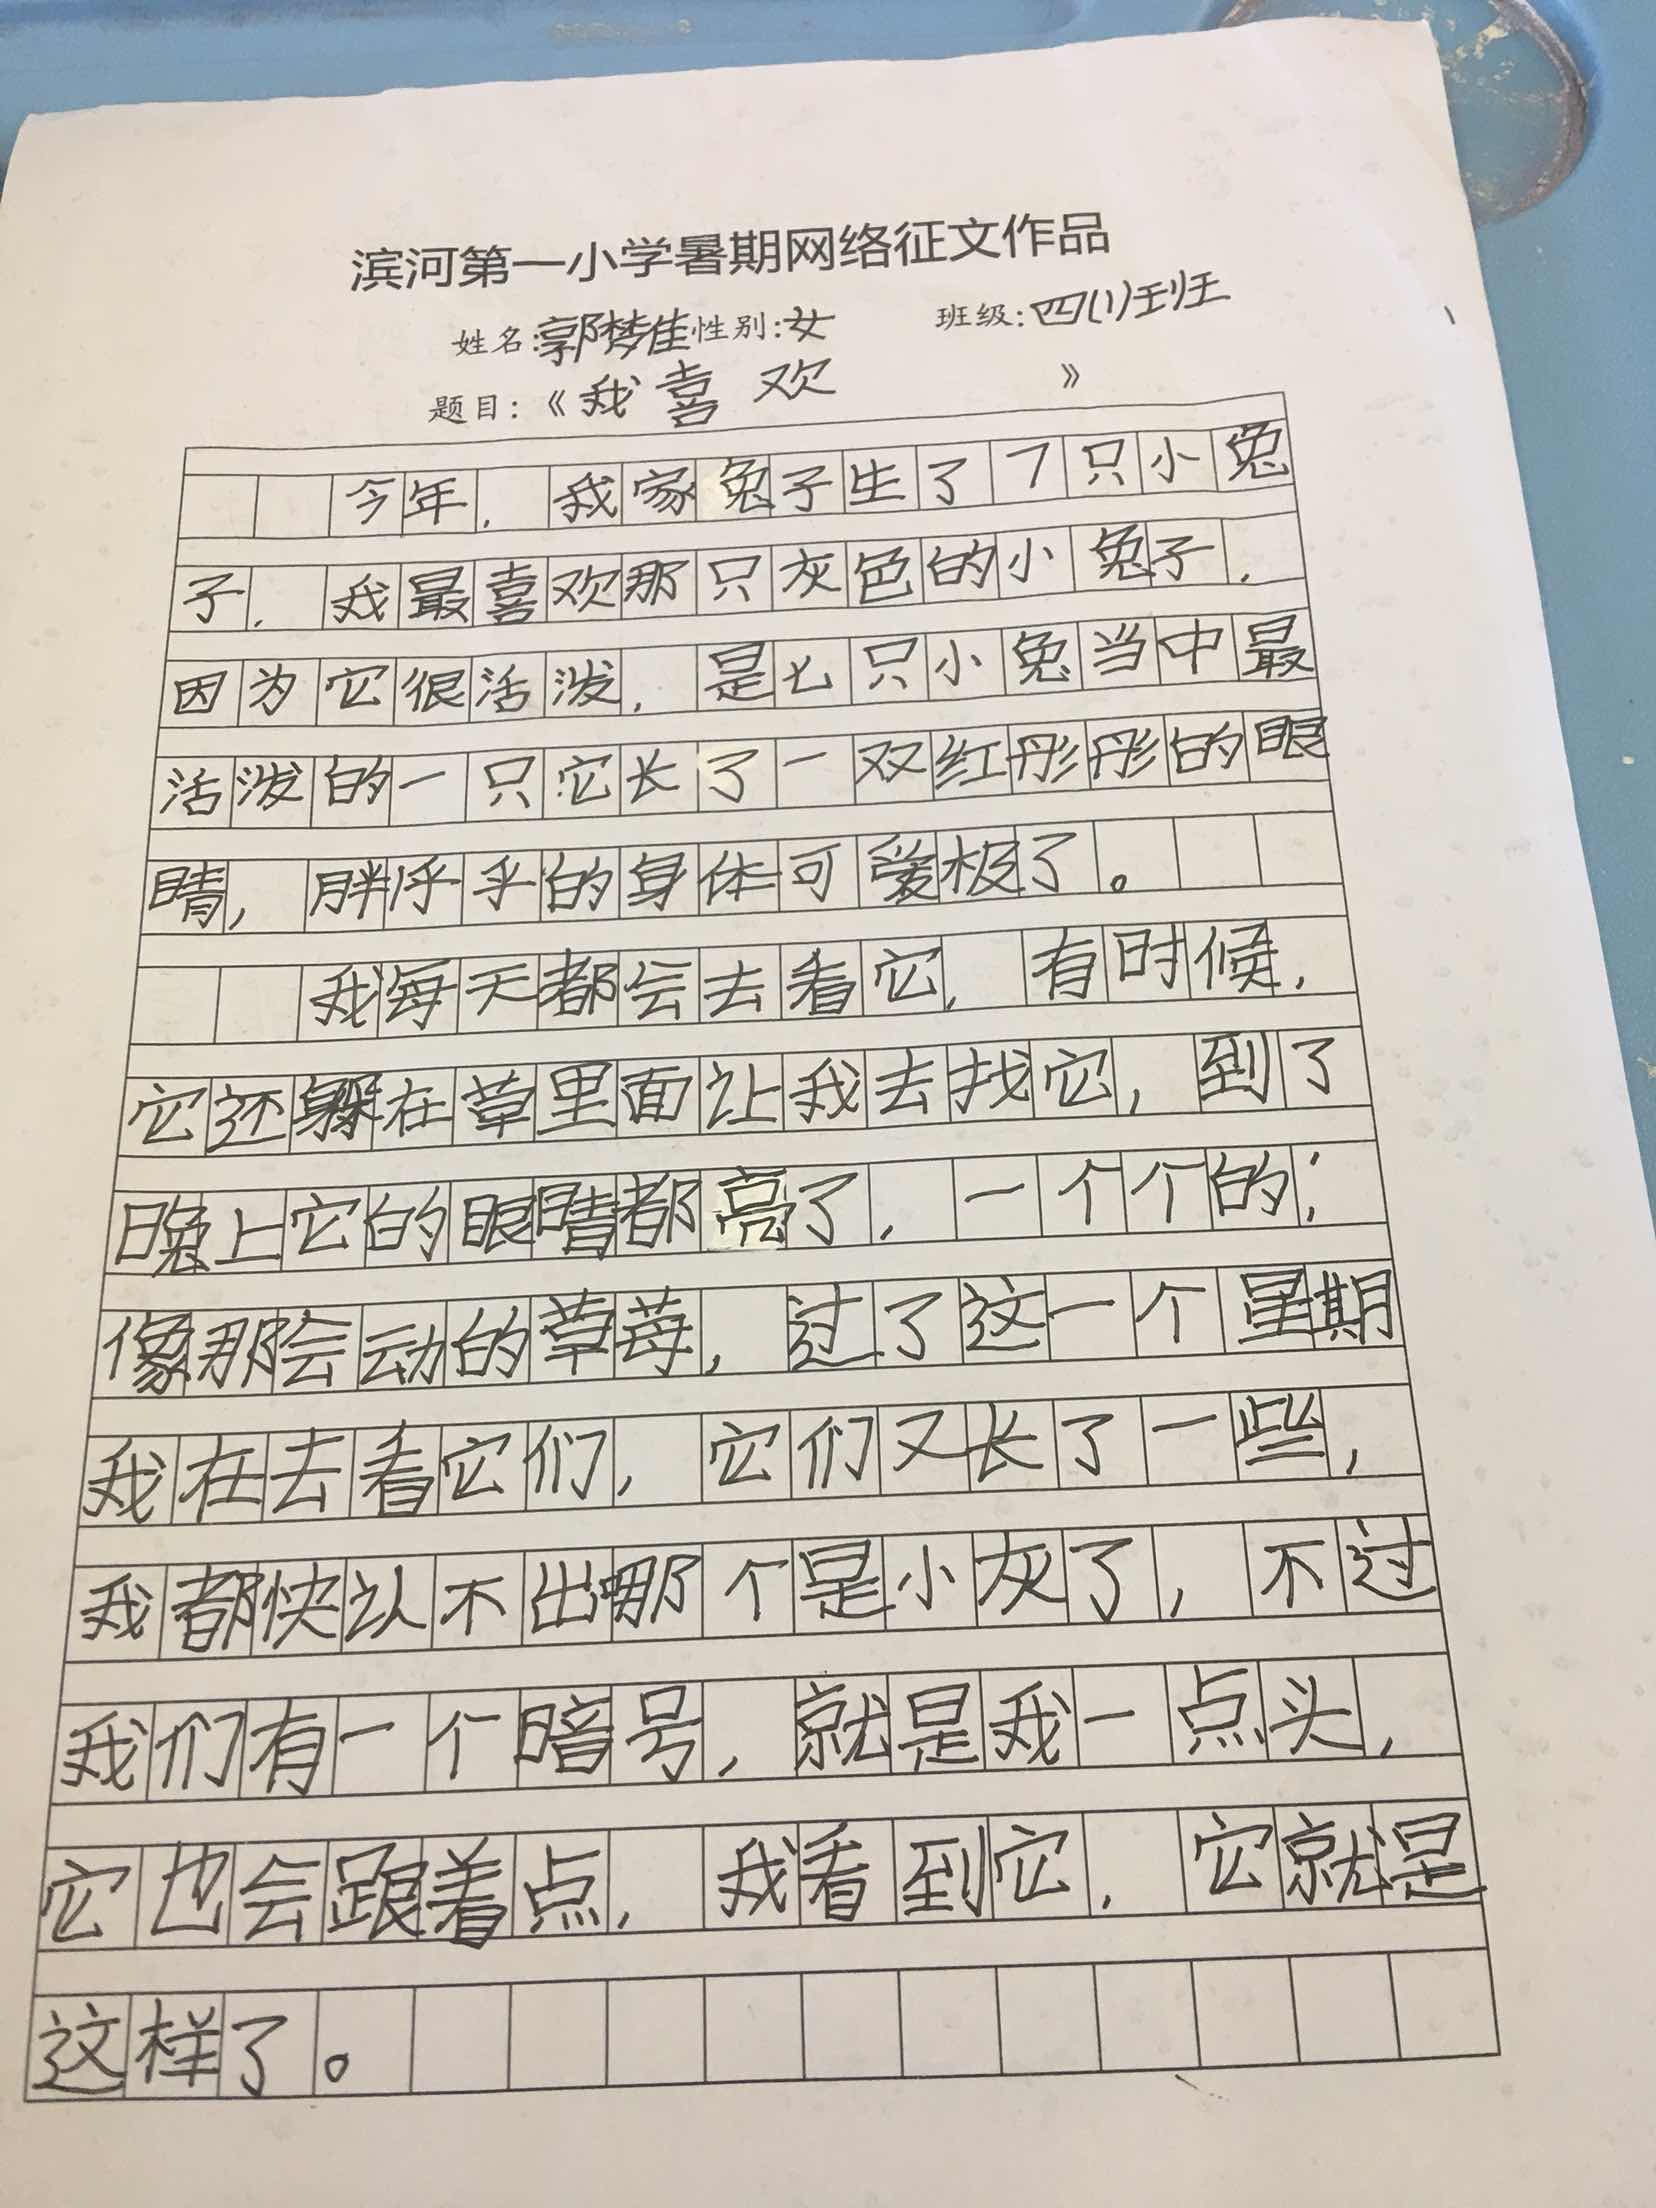 滨河第一小学暑期网络征文作品
姓名:郭梦佳性别:女 班级:四(1)班
题目:《我喜欢 》
今年,我家兔子生了7只小兔
子,我最喜欢那只灰色的小兔子,
因为它很活泼,是七只小兔当中最
活泼的一只它长了一双红彤彤的眼
睛,胖乎乎的身体可爱极了。
我每天都会去看它,有时候,
它还躲在草里面让我去找它,到了
晚上它的眼睛都亮了,一个个的;
像那会动的草莓,过了这一个星期
我在去看它们,它们又长了一些,
我都快认不出哪个是小灰了,不过
我们有一个暗号,就是我一点头,
它也会跟着点,我看到它,它就是
这样了。